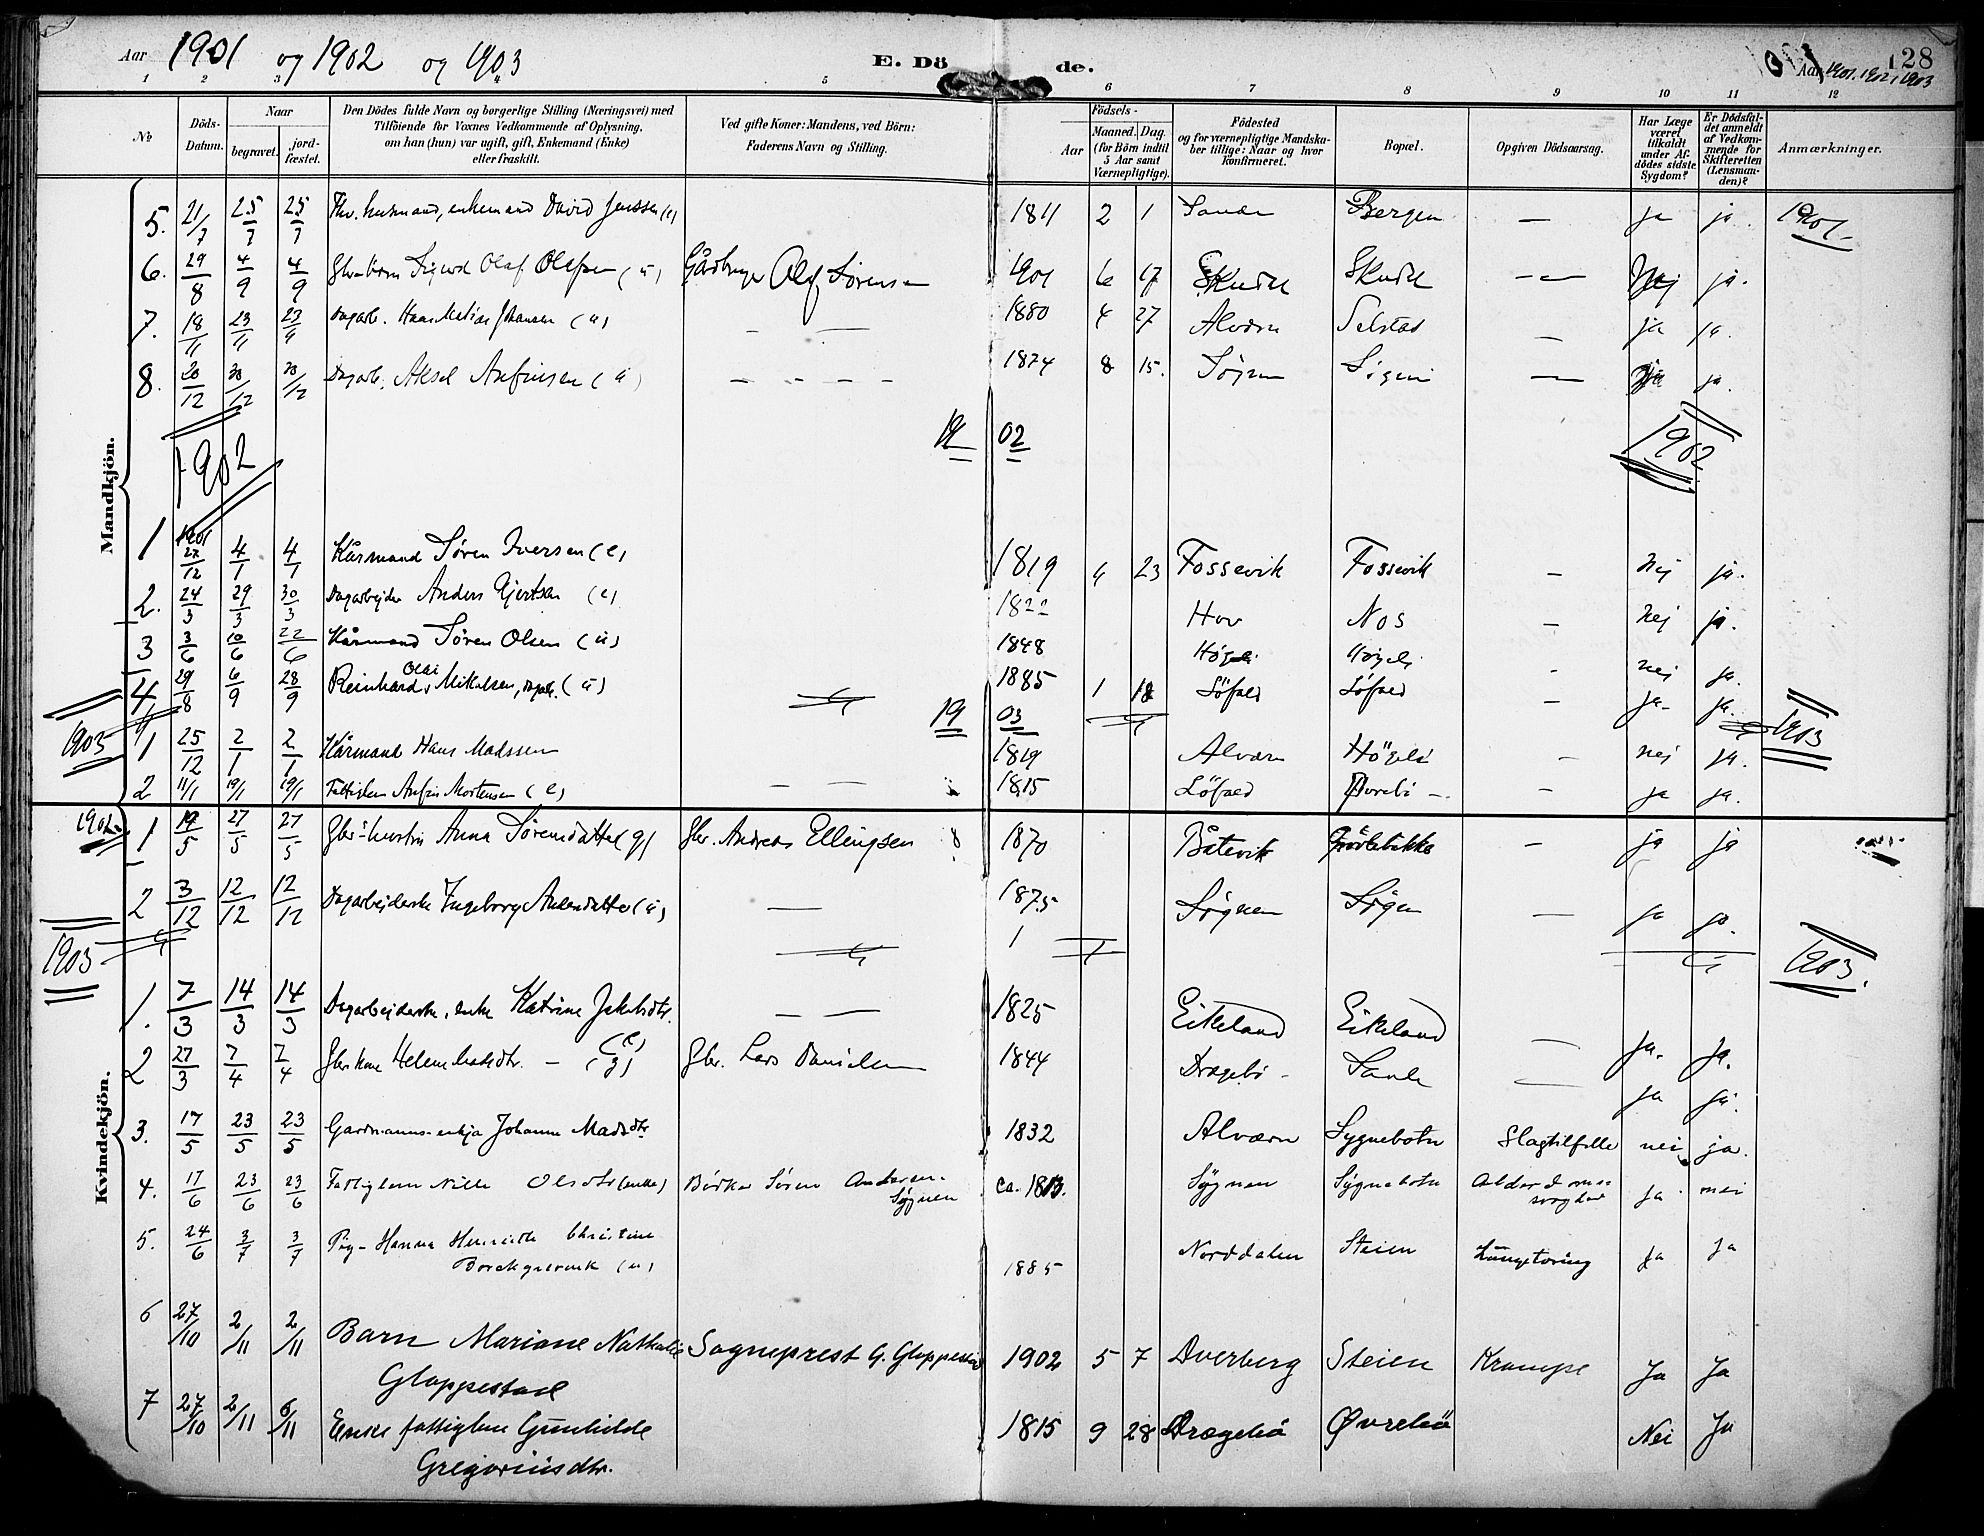 Aar 1901 og 1902 og 1903
E. Dö de.
128
Aar 1901. 1902, 1903
1 2 3 4 5 6 7 8 9 10 11 12
No
Döds-Datum.
Naar
begravet.
jord-fæstet.
Den Dödes fulde Navn og borgerlige Stilling (Næringsvei) med
Tilföiende for Voxnes Vedkommende af Oplysning,
om han (hun) var ugift, gift, Enkemand (Enke)
eller fraskilt.
Ved gifte Koner: Mandens, ved Børn:
Faderens Navn og Stilling.
Födsels-
Aar
Maaned. Dag.
(for Börn indtil
5 Aar samt
Værnepligtige).
Födested
og for værnepligtige Mandska-
ber tillige: Naar og hvor
konfirmeret.
Bopæl.
Opgiven Dödsaarsag.
Har Læge
været
tilkaldt
under Af-
dödes sidste
Sygdom?
Er Dödsfal-
det anmeldt
af Vedkom-
mende for
Skifteretten
(Lensman-
den)?
Anmærkninger.
Mandkjön.
5. 21/7 25/7 25/7 enkemand David Jenssen (e) 1811 2 1 Bergen — ja ja 1901
6. 29/8 4/9 4/9 Sigurd Olaf Olefsen (u) Gårdbruger Olef Sørensen 1901 6 17 — ja.
7. 18/11 23/11 23/11 Dagarb. Hans Johansen (u) — — 1880 4 27 Alværn Selstad — ja ja.
8. 20/12 30/12 30/12 Dagarb. Aksel Anfinsen (u) — — — — 1874 8 15. Søgnen — ja ja.
1902 19 02 1902
1 1901 27/12 4/1 4/1 Kårmand Søren Iversen (e) 1819 4 23 Fossevik Fossevik — nej ja.
2. 24/3 29/3 30/3 Dagarbejder Anders Gjertsen (e) 1822 Hov Nos — nej ja.
3 3/6 10/6 22/6 Kårmand Søren Olsen (u) 1848 — nej ja.
4 29/8 6/9 28/9 Reinhard Olai Mikalsen, dagarb. (u) 1885 1 18 Löfald Löfald — ja. ja.
1903 19 03 1903
1 25/12 2/1 2/1 Kårmand Hans Madssen 1819 Alværn — nej ja.
2 11/1 19/1 19/1 Fattiglem Anfin Mortensen (e) — — 1815 Löfald — ja ja.
Kvindekjön.
1902. 1 19/5 27/5 27/5 Gbr-hustru Anna Sørensdatter (g) Gbr. Andreas Ellingsen 1870 Båtevik — ja ja
2 3/12 12/12 12/12 Dagarbejderske Ingeborg (u) — 1875 Søgnen — ja ja.
1903 1903.
1. 7/3 14/3 14/3 Dagarbejderske, enke Katrine Jakobsdtr. (e) — — 1825 Eikeland Eikeland — ja. ja.
2 27/3 7/4 7/4 Gbr kone Helene — (g) Gbr. Lars Danielsen 1844 Drægebö — — ja ja.
3. 17/5 23/5 23/5 Gardmanns-enkja Johanne Madsdtr. 1832 Alværn Sygnebotn Slagtilfelle nei ja.
4. 17/6 23/6 23/6 Fattiglem Nille Olsdtr (enke) Börker Sören Andersen. Sygnen ca. 1813. Sygnen Sygnebotn Alderdoms- ja nei
5. 24/6 3/7 3/7 Pig- Hanna Henriette Christine
Borchgrevink (u) 1885 Norddalen Steien Lungetæring Ja Ja
6 27/10 2/11 2/11 Barn Mariane Nathalie
Gloppestad Sogneprest G. Gloppestad 1902 5 7 Dverberg Steien Krampe Ja Ja
7 27/10 2/11 6/11 Enke fattiglem Gunhilde
Gregoriusdtr. 1815 9 28 Drægebö Øvrebö Nei Ja